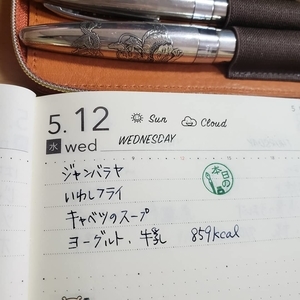 5.12
☀ Sun ☁ Cloud
水 wed
WEDNESDAY
ジャンバラヤ
いわしフライ
キャベツのスープ
ヨーグルト、牛乳 859kcal
本日の